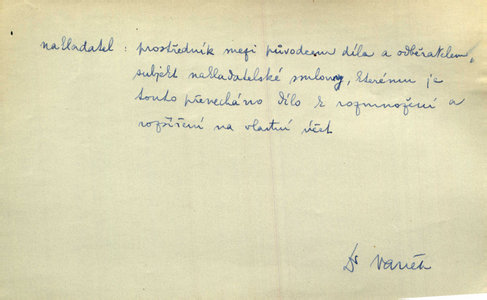 nakladatel : prostředník mezi původcem díla a odběratelem,
subjekt nakladatelské smlouvy, kterému je
touto přenecháno dílo k rozmnožení a
rozšíření na vlastní účet
Dr Vaněk